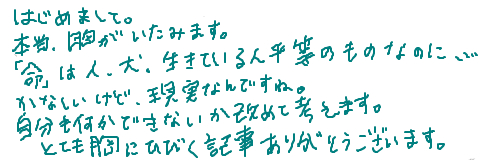 はじめまして。
本当、胸がいたみます。
「命」は人、犬、生きている人平等のものなのに…
かなしいけど、現実なんですね。
自分も何かできないか改めて考えます。
とても胸にひびく記事ありがとうございます。